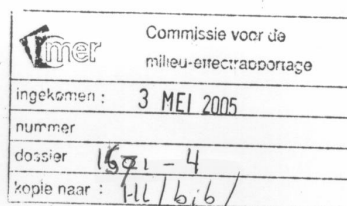 mer
Commissie voor de
milieu-effectrapportage
ingekomen : 3 MEI 2005
nummer
dossier - 4
kopie naar :